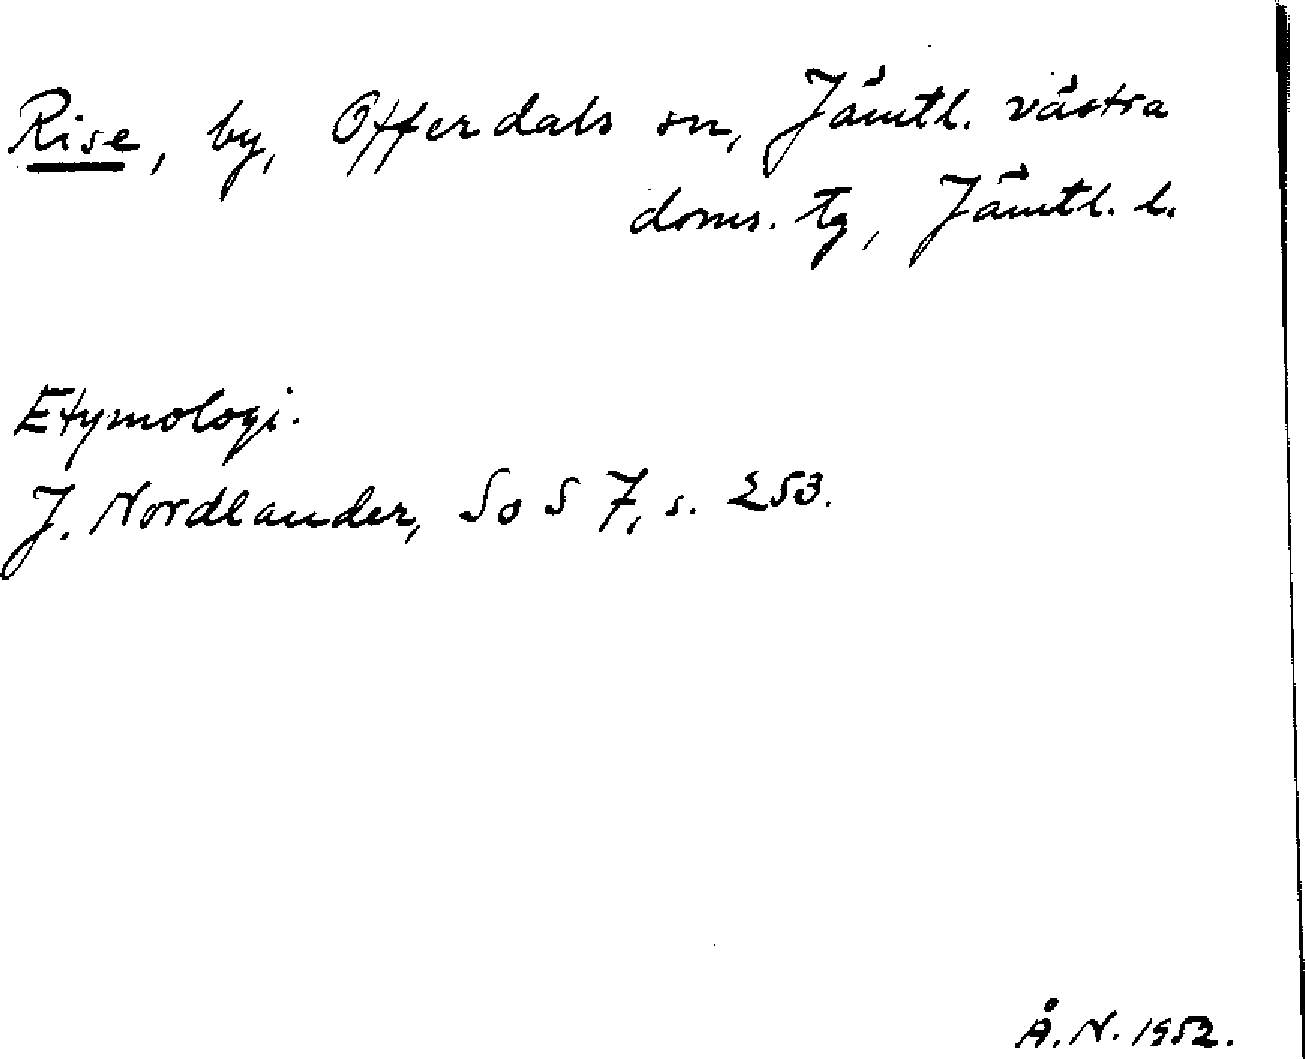 Rise, by, Offerdals sn, Jämtl. västra
doms. tg, Jämtl. l.
Etymologi.
J. Nordlander, SoS 7, s. 253.
Å. N. 1952.